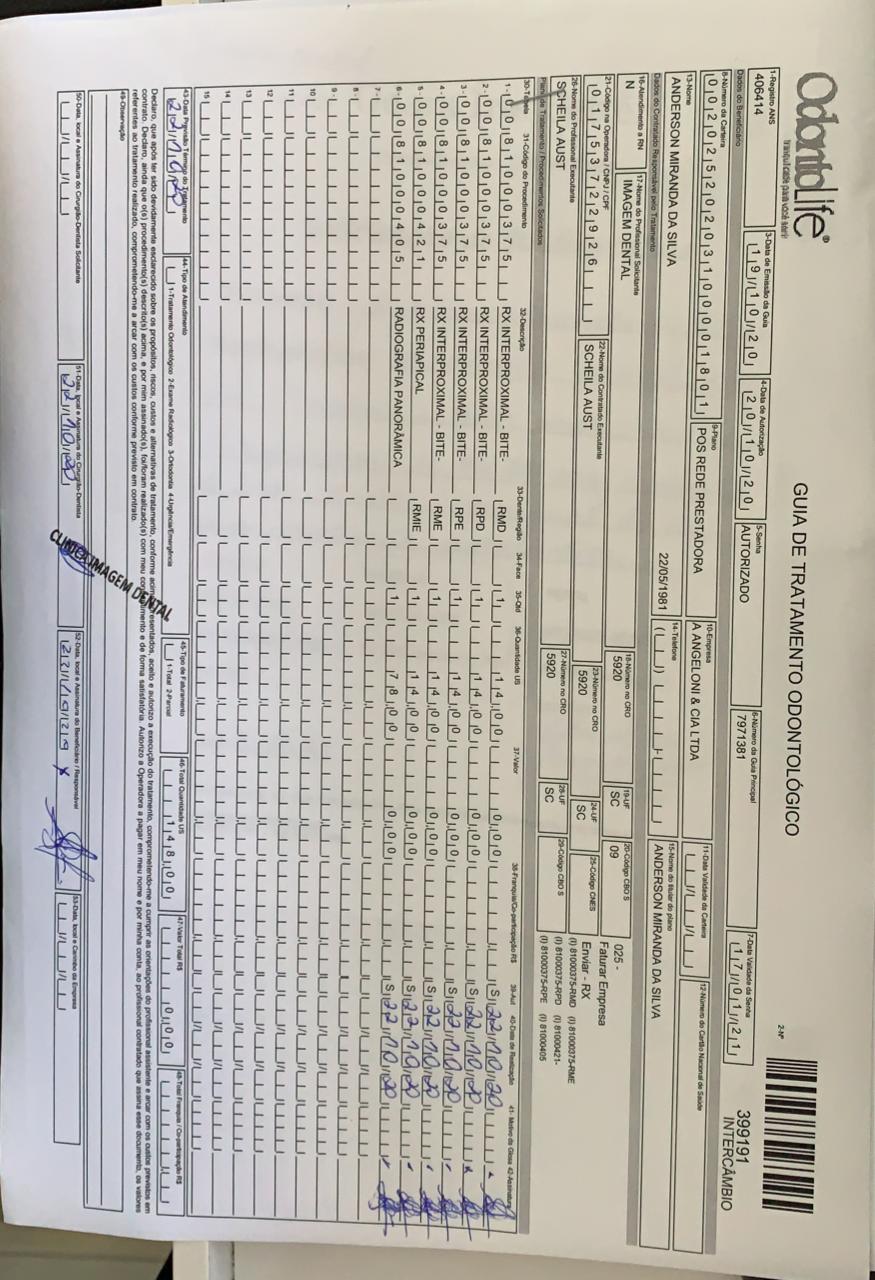 OdontoLife®
tranquilidade para você sorrir
GUIA DE TRATAMENTO ODONTOLÓGICO
2-Nº
399191
INTERCÂMBIO
1-Registro ANS
406414
3-Data de Emissão da Guia
19/10/20
4-Data de Autorização
20/10/20
5-Senha
AUTORIZADO
6-Número da Guia Principal
7971381
7-Data Validade da Senha
17/01/21
Dados do Beneficiário
8-Número da Carteira
00202520203100001801
9-Plano
POS REDE PRESTADORA
10-Empresa
A ANGELONI & CIA LTDA
11-Data Validade da Carteira
12-Número do Cartão Nacional de Saúde
13-Nome
ANDERSON MIRANDA DA SILVA
22/05/1981
14-Telefone
15-Nome do titular do plano
ANDERSON MIRANDA DA SILVA
Dados do Contratado Responsável pelo Tratamento
16-Atendimento a RN
N
17-Nome do Profissional Solicitante
IMAGEM DENTAL
18-Número no CRO
5920
19-UF
SC
20-Código CBO S
09
025 -
Faturar Empresa
21-Código na Operadora / CNPJ / CPF
01753722926
22-Nome do Contratado Executante
SCHEILA AUST
23-Número no CRO
5920
24-UF
SC
25-Código CNES
Enviar - RX
26-Nome do Profissional Executante
SCHEILA AUST
27-Número no CRO
5920
28-UF
SC
29-Código CBO S
(I) 81000375-RMD (I) 81000375-RME
(I) 81000375-RPD (I) 81000421-
(I) 81000375-RPE (I) 81000405
Plano de Tratamento / Procedimentos Solicitados
30-Tabela 31-Código do Procedimento 32-Descrição 33-Dente/Região 34-Face 35-Qtd 36-Quantidade US 37-Valor 38-Franquia/Co-participação R$ 39-Aut 40-Data de Realização 41- Motivo da Glosa 42-Assinatura
1- 00 81000375 RX INTERPROXIMAL - BITE- RMD 1 14,00 0,00 S 22/10/20
2- 00 81000375 RX INTERPROXIMAL - BITE- RPD 1 14,00 0,00 S 22/10/20
3- 00 81000375 RX INTERPROXIMAL - BITE- RPE 1 14,00 0,00 S 22/10/20
4- 00 81000375 RX INTERPROXIMAL - BITE- RME 1 14,00 0,00 S 22/10/20
5- 00 81000421 RX PERIAPICAL RMIE 1 14,00 0,00 S 22/10/20
6- 00 81000405 RADIOGRAFIA PANORÂMICA 1 78,00 0,00 S 22/10/20
7-
8-
9-
10
11
12
13
14
15
43-Data Previsão Término do Tratamento
22/10/20
44-Tipo de Atendimento
1-Tratamento Odontológico 2-Exame Radiológico 3-Ortodontia 4-Urgência/Emergência
45-Tipo de Faturamento
1-Total 2-Parcial
46-Total Quantidade US
148,00
47-Valor Total R$
0,00
48-Total Franquia / Co-participação R$
Declaro, que após ter sido devidamente esclarecido sobre os propósitos, riscos, custos e alternativas de tratamento, conforme acima apresentados, aceito e autorizo a execução do tratamento, comprometendo-me a cumprir as orientações do profissional assistente e arcar com os custos previstos em
contrato. Declaro, ainda que o(s) procedimento(s) descrito(s) acima, e por mim assinado(s), foi/foram realizado(s) com meu consentimento e de forma satisfatória. Autorizo a Operadora a pagar em meu nome e por minha conta, ao profissional contratado que assina esse documento, os valores
referentes ao tratamento realizado, comprometendo-me a arcar com os custos conforme previsto em contrato.
49-Observação
50-Data, local e Assinatura do Cirurgião-Dentista Solicitante
51-Data, local e Assinatura do Cirurgião-Dentista
22/10/20
CLINICA IMAGEM DENTAL
52-Data, local e Assinatura do Beneficiário / Responsável
53-Data, local e Carimbo da Empresa